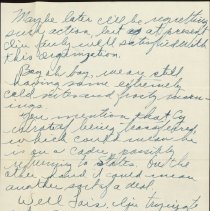 Maybe later I'll be regretting
such action, but as at present
I'm fairly well satisfied with
this organization.
Boy oh boy, we are still
having some extremely
cold nites and frosty morn-
ings.
You mention that Cy
being transferred
which could mean he
is on a cadre, possibly
returning to states. On the
other hand it could mean
another sort of a deal.
Well Fais, I'm trying to